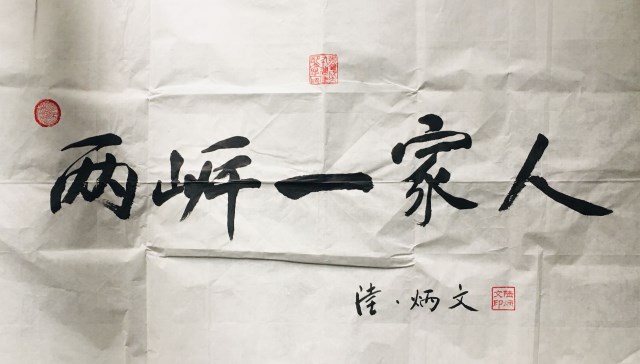 两岸一家人
陸·炳文